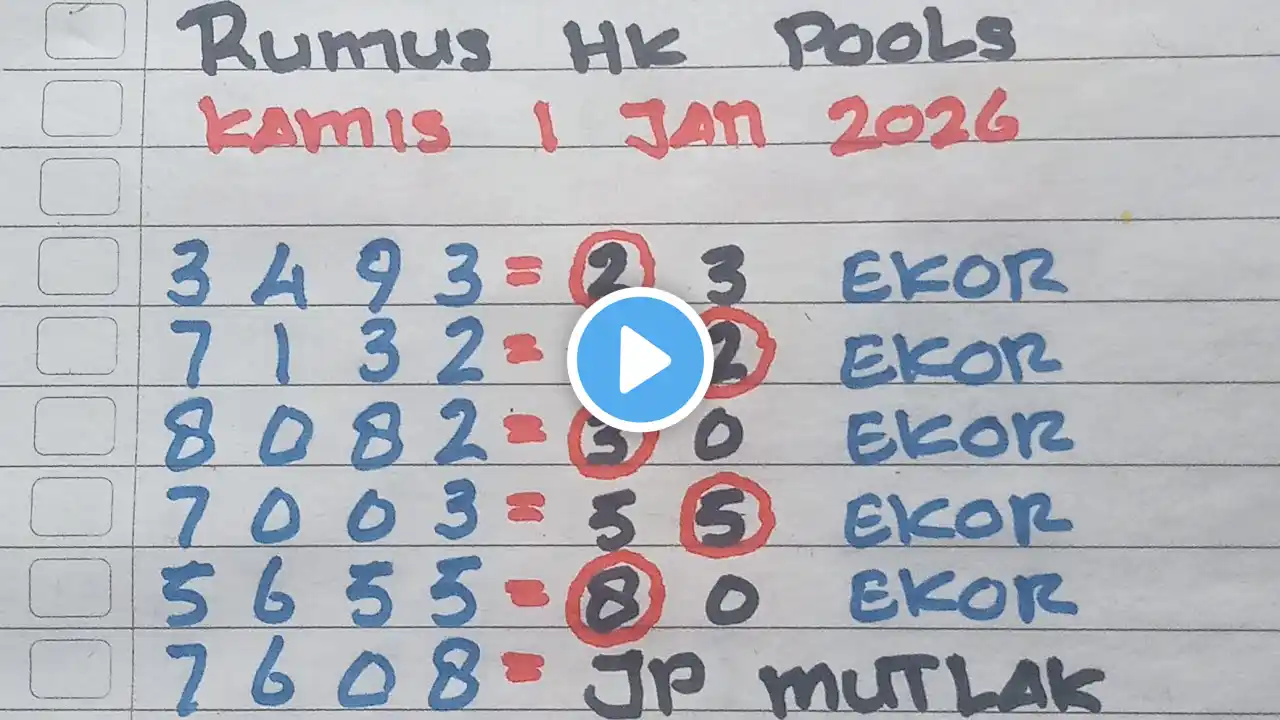 Rumus HK POOLS
KAMIS 1 JAN 2026
3 4 9 3 = 2 3 EKOR
7 1 3 2 = 2 EKOR
8 0 8 2 = 3 0 EKOR
7 0 0 3 = 5 5 EKOR
5 6 5 5 = 8 0 EKOR
7 6 0 8 = JP MUTLAK